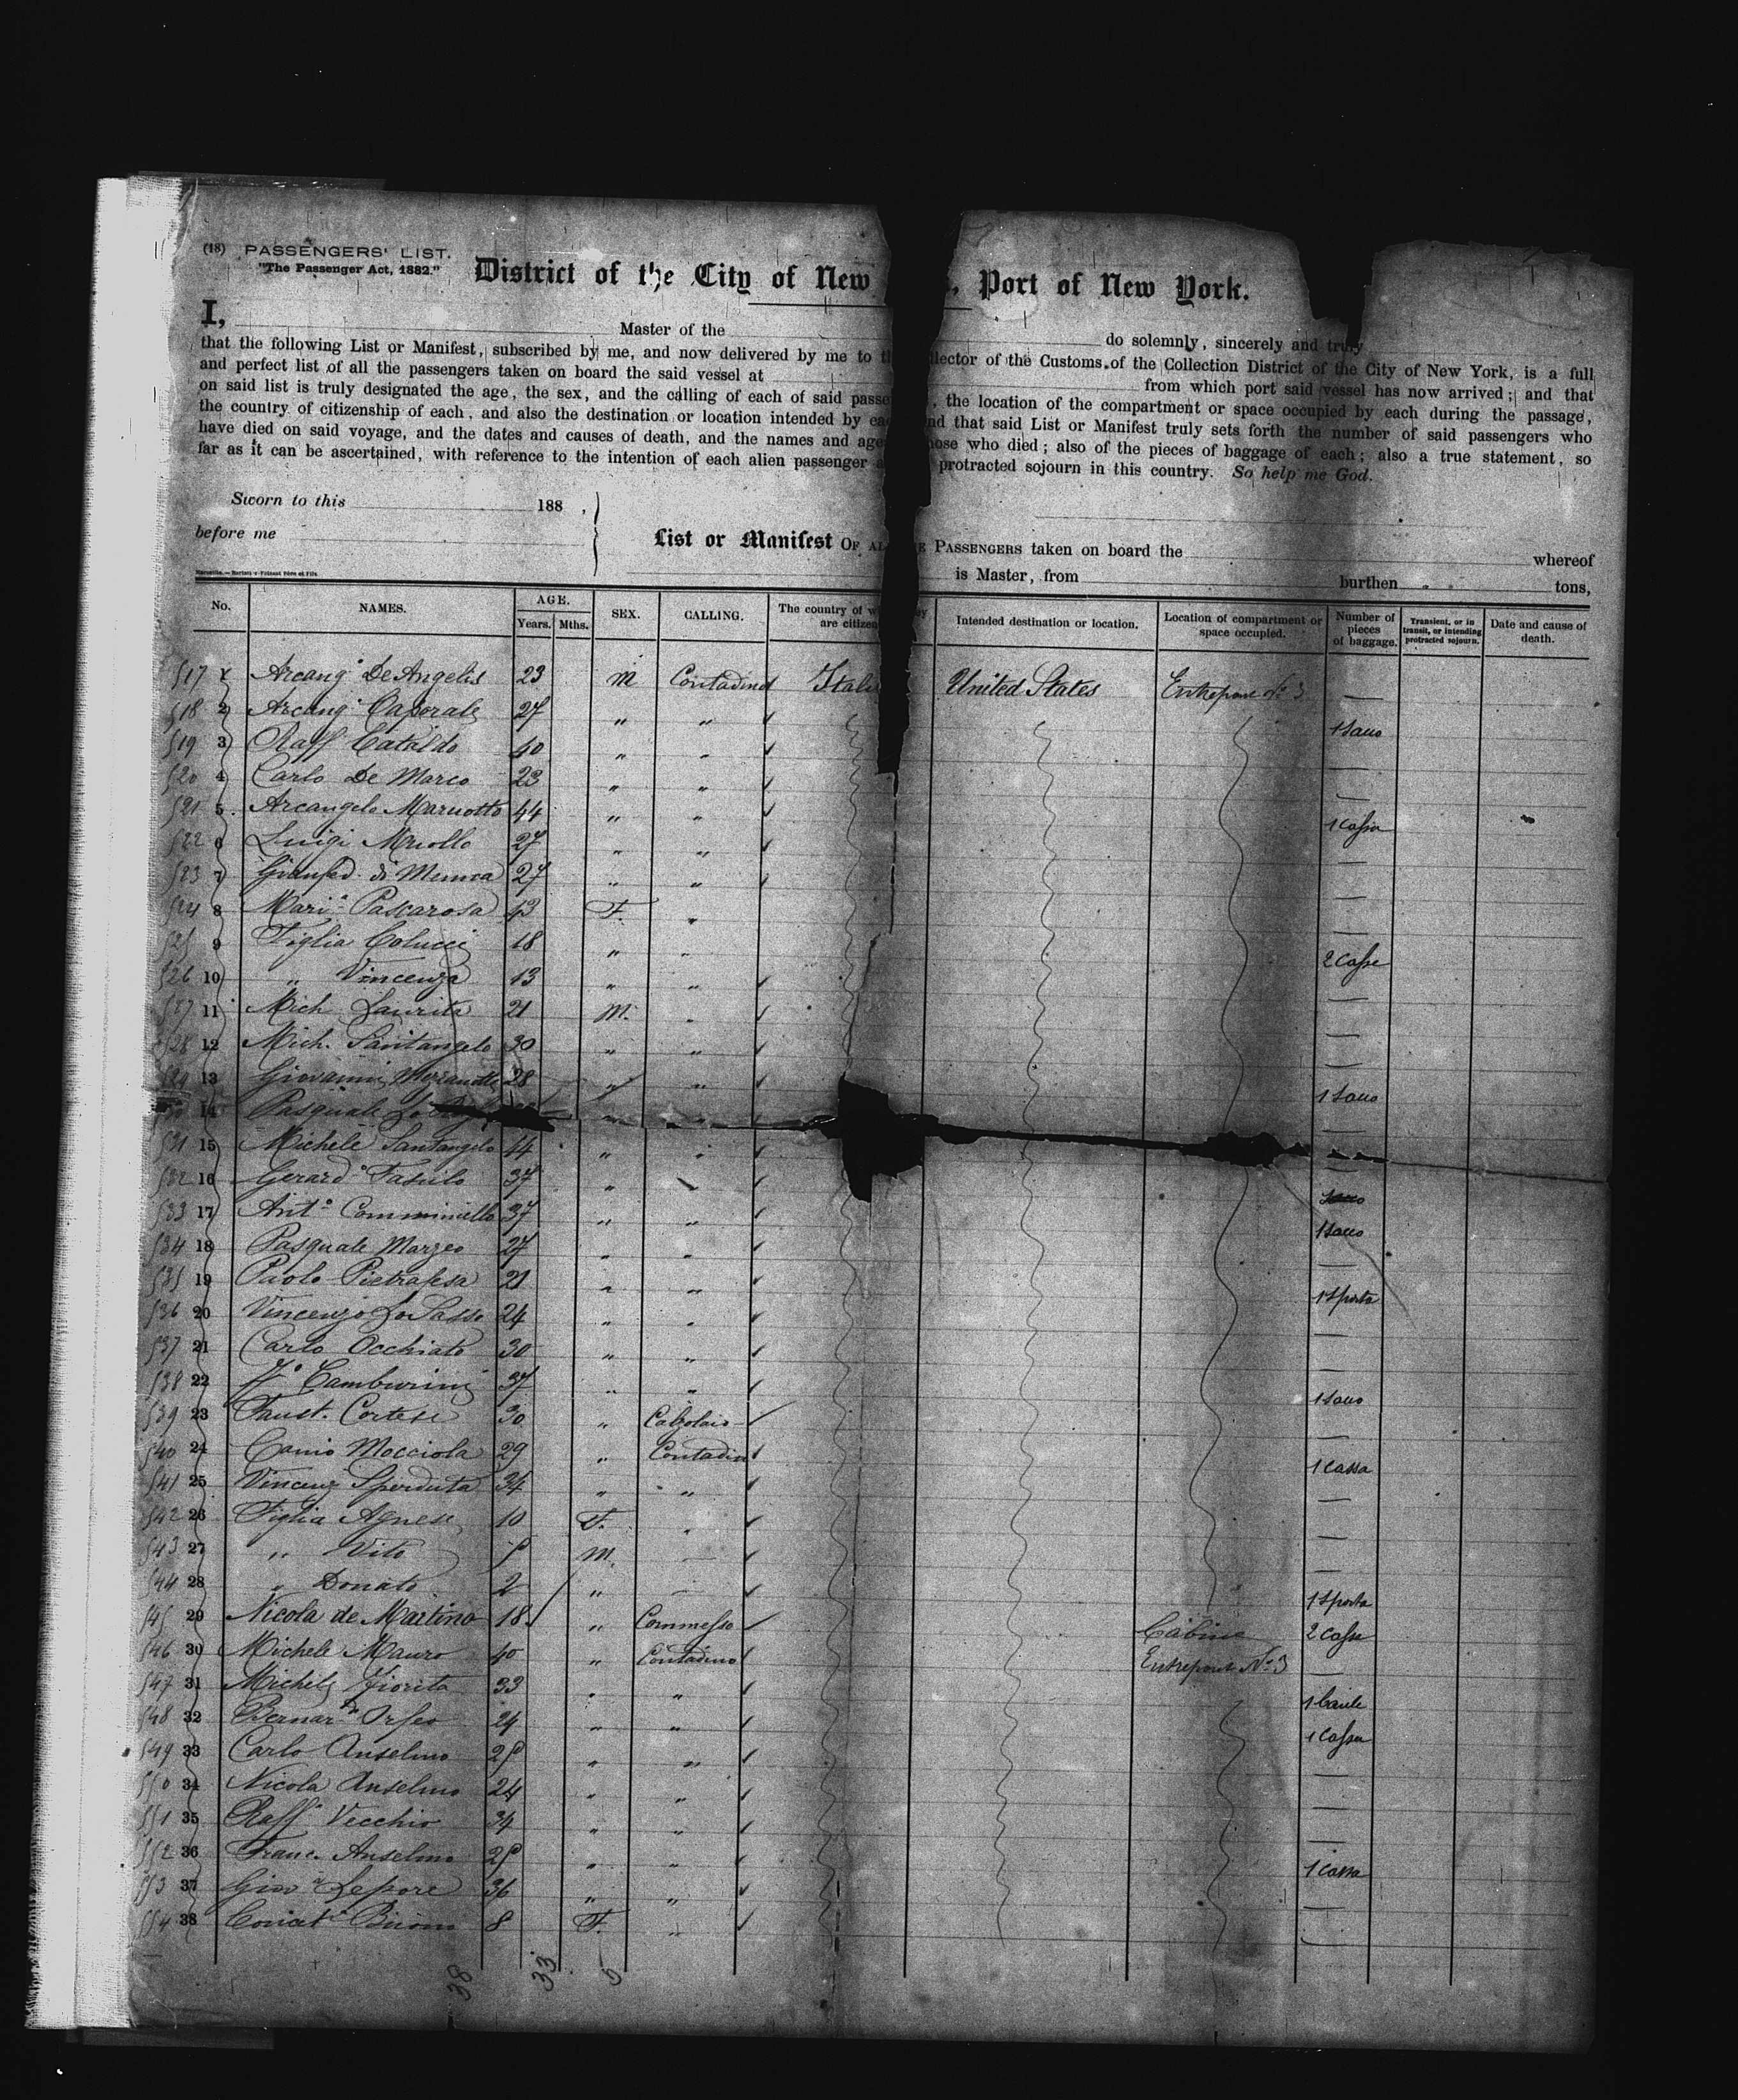 (18) PASSENGERS' LIST.
"The Passenger Act, 1882."
District of the City of New , Port of New York.
I, Master of the do solemnly, sincerely and truly
that the following List or Manifest, subscribed by me, and now delivered by me to llector of the Customs of the Collection District of the City of New York, is a full
and perfect list of all the passengers taken on board the said vessel at from which port said vessel has now arrived; and that
on said list is truly designated the age, the sex, and the calling of each of said passe , the location of the compartment or space occupied by each during the passage,
the country of citizenship of each, and also the destination or location intended by ea nd that said List or Manifest truly sets forth the number of said passengers who
have died on said voyage, and the dates and causes of death, and the names and age hose who died; also of the pieces of baggage of each; also a true statement, so
far as it can be ascertained, with reference to the intention of each alien passenger protracted sojourn in this country. So help me God.
Sworn to this 188 ,
before me
List or Manifest OF AL E PASSENGERS taken on board the whereof
is Master, from burthen tons,
No. NAMES. AGE. Years. Mths. SEX. CALLING. The country of w are citizen Intended destination or location. Location of compartment or space occupied. Number of pieces of baggage. Transient, or in transit, or intending protracted sojourn. Date and cause of death.
517 Arcang° De Angelis 23 M Contadino Itali United States Entrepont N° 3 —
518 2 Arcang° Caporale 27 " " 1 Sacco
519 3 Raff Cataldo 40 " " —
520 4 Carlo De Marco 23 " " —
521 5 Arcangelo 44 " " 1 Cassa
522 6 Luigi 27 " " —
523 7 27 " " —
524 8 Mari° Pascarosa 43 F. " —
525 9 Figlia Colucci 18 " " 2 Casse
526 10 " Vincenza 13 " " —
527 11 Mich. Laurita 21 M. " —
528 12 Mich. Santangelo 30 " " —
529 13 Giovanni 28 " " 1 Sacco
14 Pasquale " " —
531 15 Michele Santangelo 44 " " —
532 16 Gerard° Fasulo 37 " "
533 17 Ant° 37 " " 1 Sacco
534 18 Pasquale Marzeo 27 " " —
535 19 Paolo Pietrafesa 21 " " 1 Sporta
536 20 Vincenzo Lo Sasso 24 " " —
537 21 Carlo Occhiato 30 " " —
538 22 Camburini 37 " " 1 Sacco
539 23 Faust. Cortese 30 " Calzolaio —
540 24 Canio Mocciola 29 " Contadin 1 Cassa
541 25 Vincenz° Sperduta 34 " " —
542 26 Figlia Agnese 10 F. " —
543 27 " Vito M. — —
544 28 " Donato 2 " — 1 Sporta
545 29 Nicola de Martino 18 " Commesso Cabine 2 Casse
546 30 Michele Mauro 40 " Contadino Entrepont N° 3 —
547 31 Michele Fiorita 33 " " 1 Baule
548 32 Bernar° Orfeo 24 " " 1 Cassa
549 33 Carlo Anselmo " " —
550 34 Nicola Anselmo 24 " " —
551 35 Raff Vecchio 34 " " —
552 36 Franc. Anselmo " " 1 Cassa
553 37 Giov Lepore 36 " " —
554 38 8 F. " —
38 33 5